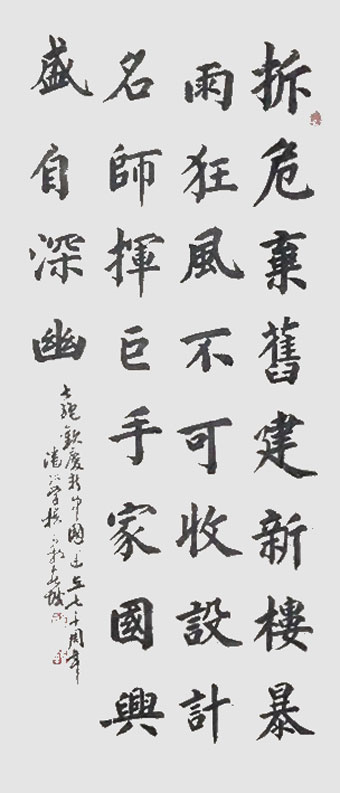 拆危棄舊建新樓暴
雨狂風不可收設計
名師揮巨手家國興
盛自深幽
七絕歡慶新中國建立七十周年